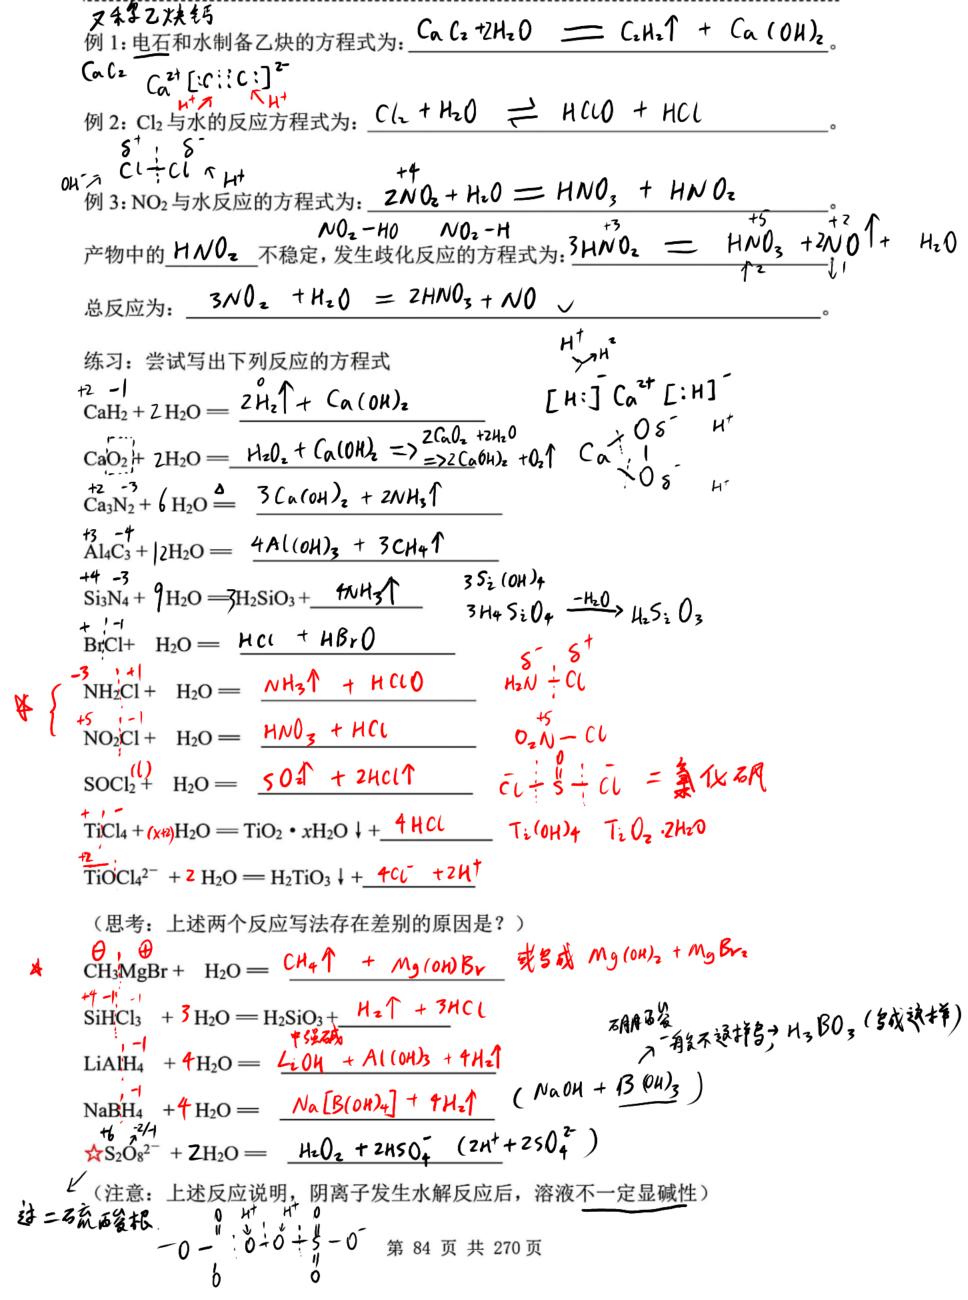 又称乙炔钙
例 1: 电石和水制备乙炔的方程式为: CaC₂+2H₂O == C₂H₂↑ + Ca(OH)₂。
CaC₂ Ca²⁺[:C⫶⫶C:]²⁻
H⁺ H⁺
例 2: Cl₂ 与水的反应方程式为: Cl₂ + H₂O ⇌ HClO + HCl 。
δ⁺ δ⁻
OH⁻ Cl-Cl H⁺
+4
例 3: NO₂ 与水反应的方程式为: 2NO₂ + H₂O == HNO₃ + HNO₂ 。
NO₂-HO NO₂-H +3 +5 +2
产物中的 HNO₂ 不稳定，发生歧化反应的方程式为: 3HNO₂ == HNO₃ + 2NO↑ + H₂O
↑2 ↓1
总反应为: 3NO₂ + H₂O = 2HNO₃ + NO ✓ 。
练习: 尝试写出下列反应的方程式
H⁺ H²
+2 -1 0
CaH₂ + 2H₂O == 2H₂↑ + Ca(OH)₂ [H:]⁻ Ca²⁺ [:H]⁻
CaO₂ + 2H₂O == H₂O₂ + Ca(OH)₂ => 2CaO₂ + 2H₂O => 2Ca(OH)₂ + O₂↑ Ca Oδ⁻ Oδ⁻ H⁺ H⁺
+2 -3
Ca₃N₂ + 6H₂O =△= 3Ca(OH)₂ + 2NH₃↑
+3 -4
Al₄C₃ + 12H₂O == 4Al(OH)₃ + 3CH₄↑
+4 -3 3Si(OH)₄
Si₃N₄ + 9H₂O == 3H₂SiO₃ + 4NH₃↑ 3H₄SiO₄ -H₂O→ H₂SiO₃
+ -1
BrCl + H₂O == HCl + HBrO
-3 +1 δ⁻ δ⁺
NH₂Cl + H₂O == NH₃↑ + HClO H₂N-Cl
+5 -1 +5
NO₂Cl + H₂O == HNO₃ + HCl O₂N-Cl
(l) O
SOCl₂ + H₂O == SO₂↑ + 2HCl↑ Cl-S-Cl = 氯化砜
+ -
TiCl₄ + (x+2)H₂O == TiO₂・xH₂O↓ + 4HCl Ti(OH)₄ TiO₂・2H₂O
+2
TiOCl₄²⁻ + 2H₂O == H₂TiO₃↓ + 4Cl⁻ + 2H⁺
（思考: 上述两个反应写法存在差别的原因是? ）
⊖ ⊕
CH₃MgBr + H₂O == CH₄↑ + Mg(OH)Br 或写成 Mg(OH)₂ + MgBr₂
+4 -1 -1
SiHCl₃ + 3H₂O == H₂SiO₃ + H₂↑ + 3HCl
中强碱 一般不这样写, → H₃BO₃ (写成这样)
-1
LiAlH₄ + 4H₂O == LiOH + Al(OH)₃ + 4H₂↑
-1
NaBH₄ + 4H₂O == Na[B(OH)₄] + 4H₂↑ (NaOH + B(OH)₃)
+6 -2/-1
☆S₂O₈²⁻ + 2H₂O == H₂O₂ + 2HSO₄⁻ (2H⁺ + 2SO₄²⁻)
（注意: 上述反应说明，阴离子发生水解反应后，溶液不一定显碱性）
过二硫酸根
O H⁺ H⁺ O
⁻O- O-O-S-O⁻
O O
第 84 页 共 270 页